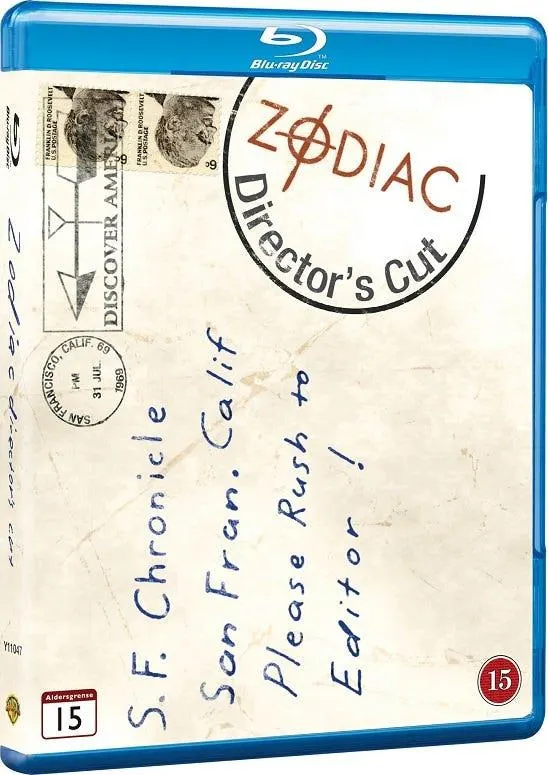 Blu-ray Disc
ZODIAC
Director's Cut
FRANKLIN D. ROOSEVELT
U.S. POSTAGE
6¢
FRANKLIN D. ROOSEVELT
U.S. POSTAGE
6¢
DISCOVER AMERICA
SAN FRANCISCO, CALIF. 69
PM
31 JUL.
1969
S.F. Chronicle
San Fran. Calif
Please Rush to
Editor!
15
Blu-ray Disc
Zodiac director's cut
Y11047
WB
Aldersgrense
15